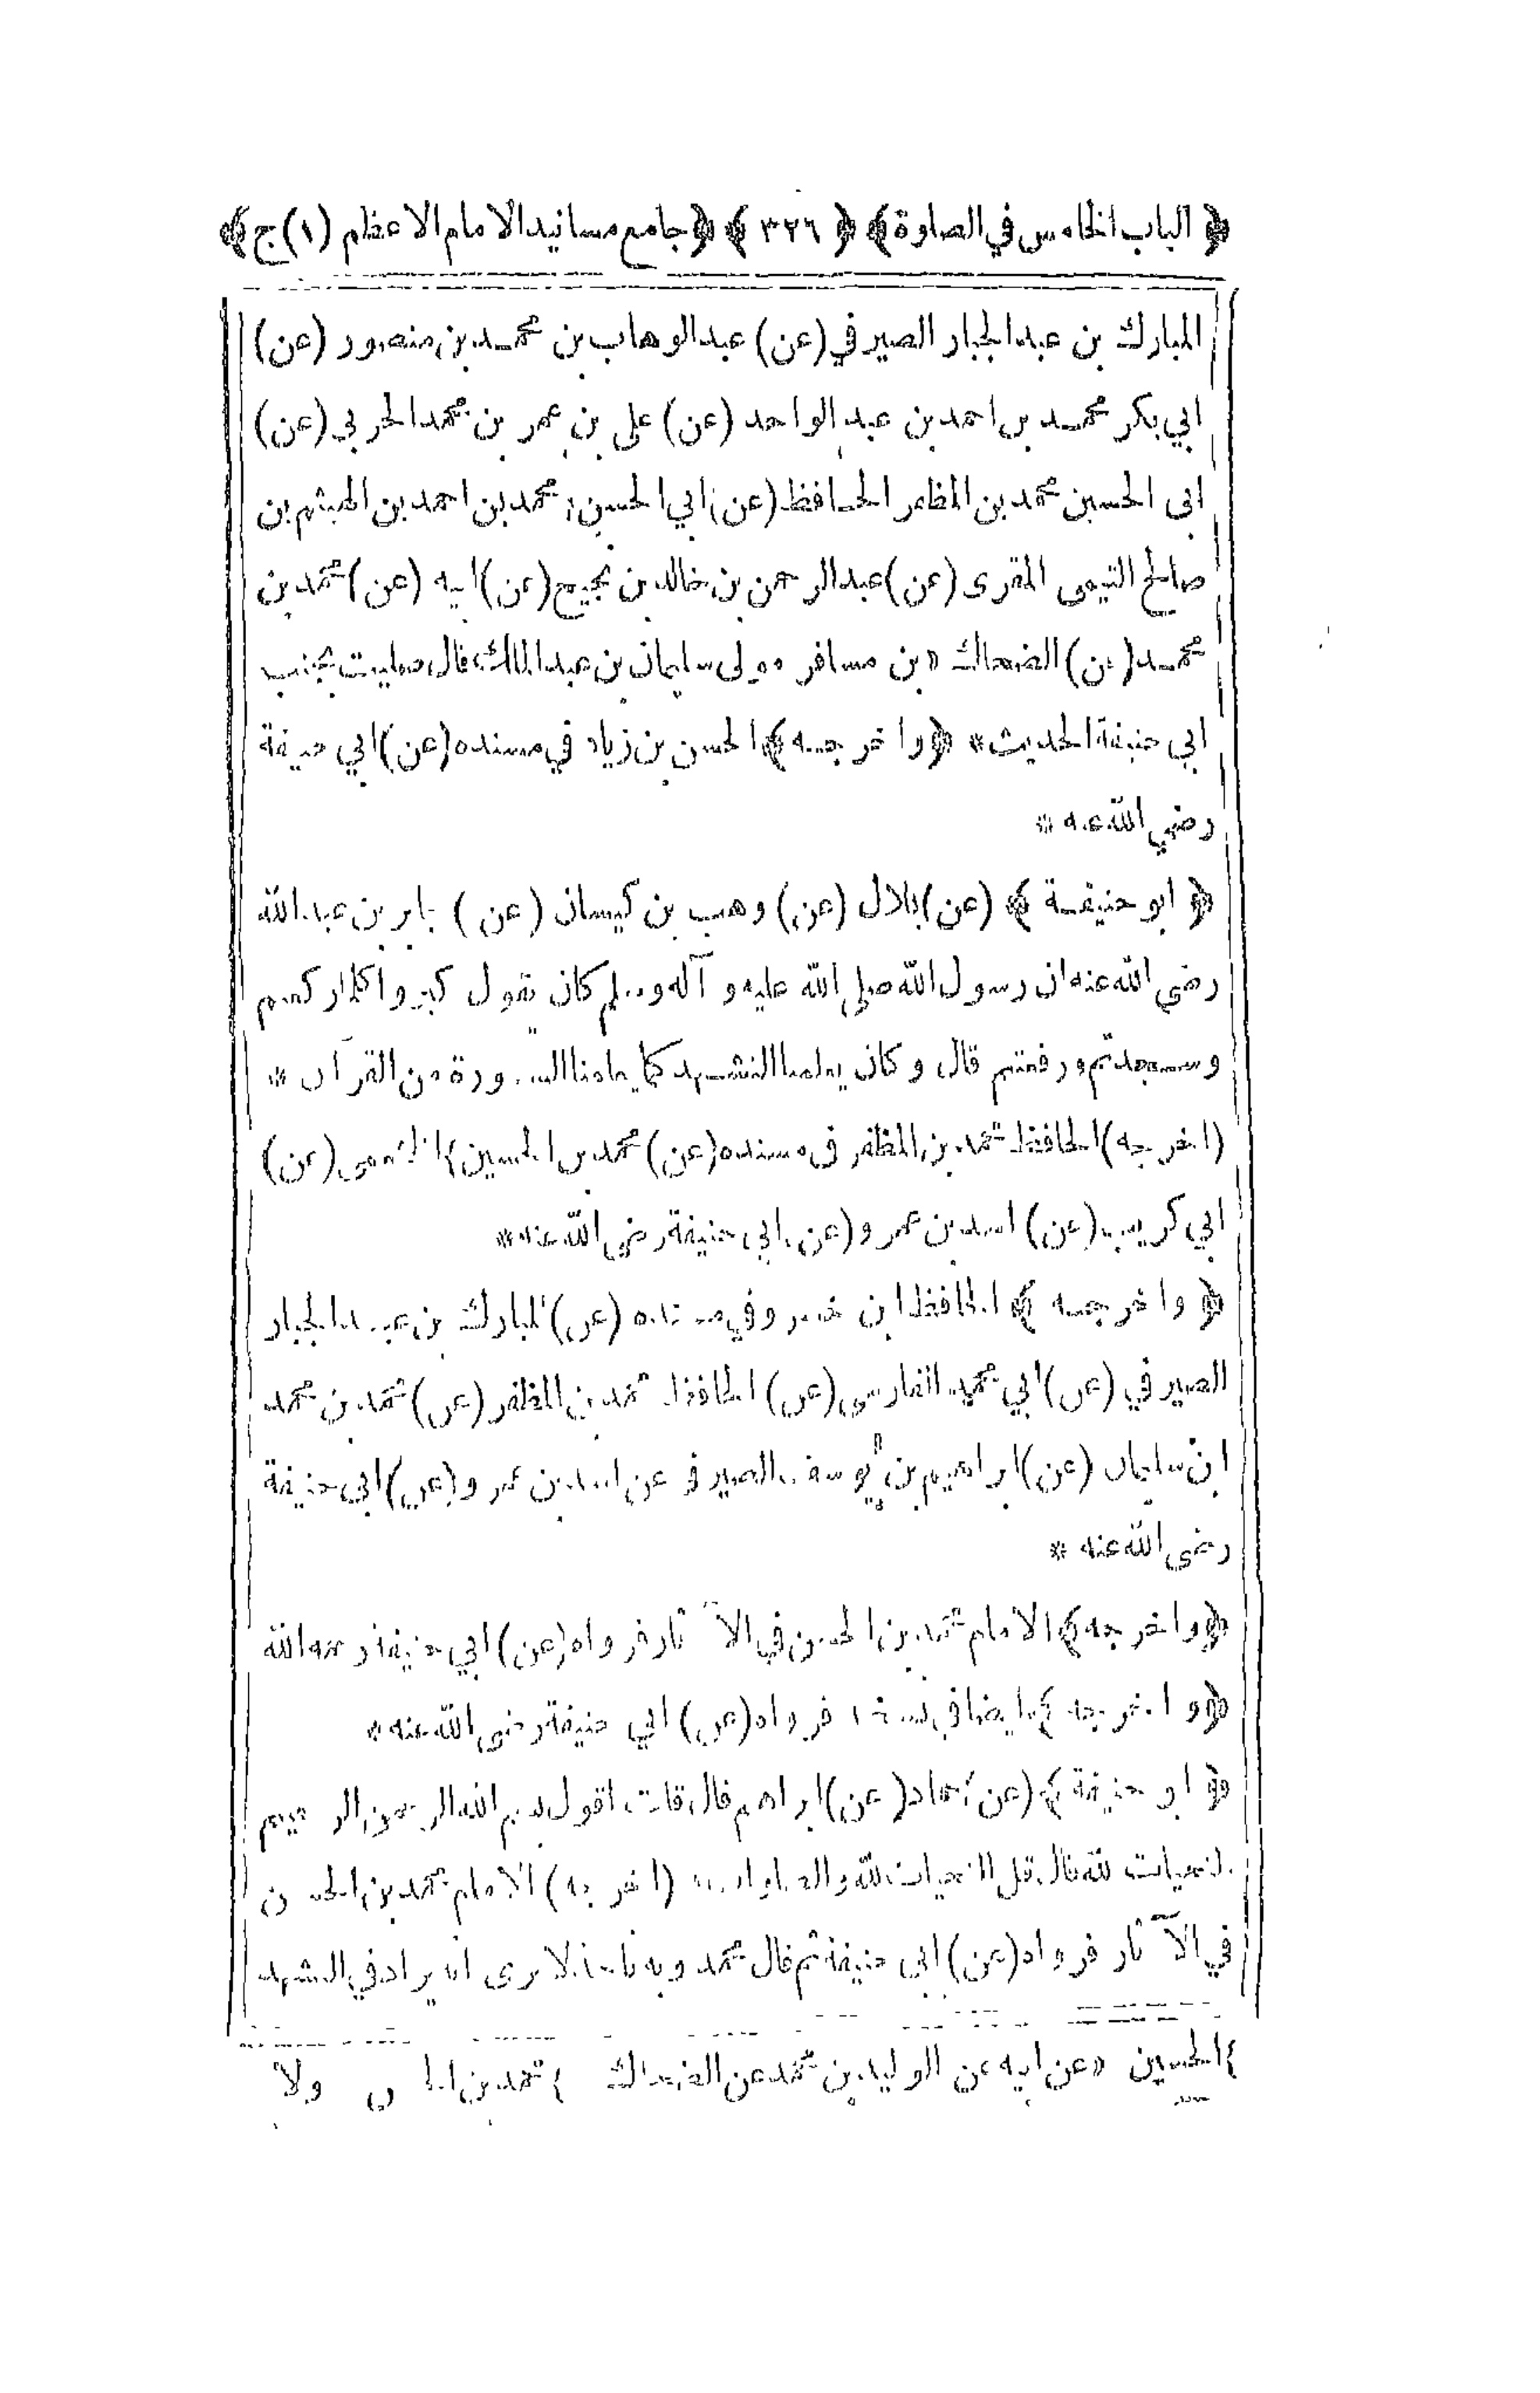 ﴿ الباب الخامس في الصلوة ﴾ ﴿ ٣٢٦ ﴾ ﴿ جامع مسانيد الامام الاعظم (١) ج ﴾
المبارك بن عبد الجبار الصيرفي (عن) عبد الوهاب بن محمد بن منصور (عن)
ابي بكر محمد بن احمد بن عبد الواحد (عن) على بن عمر بن محمد الحربي (عن)
ابى الحسين محمد بن المظفر الحافظ (عن) ابي الحسن محمد بن احمد بن الهيثم بن
صالح التيمى المقرى (عن) عبد الرحمن بن خالد بن نجيح (عن) ابيه (عن) محمد بن
محمد (عن) الضحاك بن مسافر مولى سليمان بن عبد الملك قال صليت بجنب
ابي حنيفة الحديث * ﴿ واخرجه ﴾ الحسن بن زياد في مسنده (عن) ابي حنيفة
رضي الله عنه *
﴿ ابو حنيفة ﴾ (عن) بلال (عن) وهب بن كيسان (عن) جابر بن عبد الله
رضى الله عنه ان رسول الله صلى الله عليه وآله وسلم كان يقول كبروا كلما ركعتم
وسجدتم ورفعتم قال وكان يعلمنا التشهد كما يعلمنا السورة من القرآن *
(اخرجه) الحافظ محمد بن المظفر في مسنده (عن) محمد بن الحسين (عن)
ابي كريب (عن) اسد بن عمرو (عن) ابى حنيفة رضى الله عنه *
﴿ واخرجه ﴾ الحافظ ابن خسرو في مسنده (عن) المبارك بن عبد الجبار
الصيرفي (عن) ابي محمد الفارسى (عن) الحافظ محمد بن المظفر (عن) محمد بن محمد
ابن سليمان (عن) ابراهيم بن يوسف الصيرفي عن اسد بن عمرو (عن) ابى حنيفة
رضى الله عنه *
﴿ واخرجه ﴾ الامام محمد بن الحسن في الآثار فرواه (عن) ابي حنيفة رحمه الله
﴿ واخرجه ﴾ ايضا في نسخته فرواه (عن) ابي حنيفة رضى الله عنه *
﴿ ابو حنيفة ﴾ (عن) حماد (عن) ابراهيم قال قلت اقول بسم الله الرحمن الرحيم
التحيات لله قال قل التحيات لله والصلوات * (اخرجه) الامام محمد بن الحسن
في الآثار فرواه (عن) ابى حنيفة ثم قال محمد وبه ناخذ لا نرى ان يزاد في التشهد
الحسين * عن ابيه عن الوليد بن محمد عن الضحاك محمد بن ولا